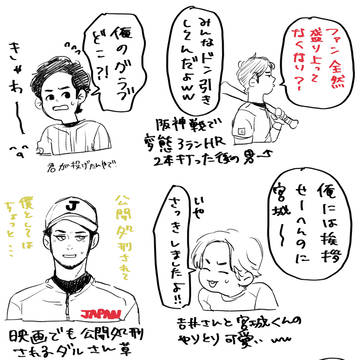 ファン全然
盛り上って
なくない?
みんなドン引き
してんだよww
阪神戦で
変態3ランHR
2本打った後の男→
俺のグラブ
どこ?!
きゃわ〜
君が投げたんやで
俺には挨拶
せーへんのに
宮城〜
いや
さっきしましたよ!!
吉井さんと宮城くんの
やりとり可愛いww
公開処刑されて
僕としては
ちょっと…
J
JAPAN
映画でも公開処刑
されるダルさん草